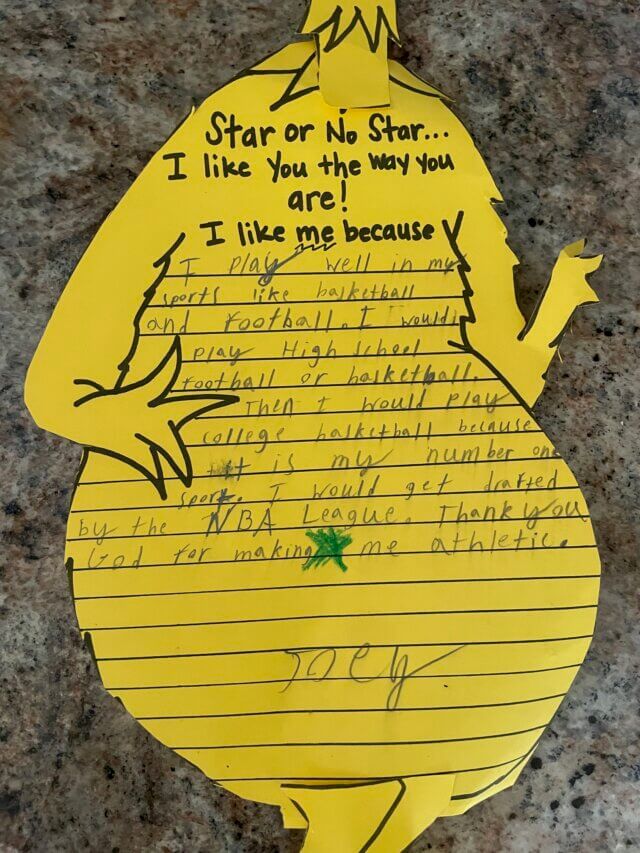 Star or No Star...
I like You the way you
are!
I like me because
I play well in my
sports like basketball
and football. I would
play High school
football or basketball.
Then I would play
college basketball because
it is my number one
sport. I would get drafted
by the NBA League. Thank you
God for making me athletic.
Joey